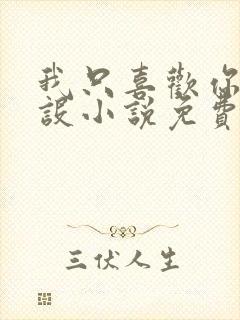 我只喜歡你
設小說免費
三伏人生